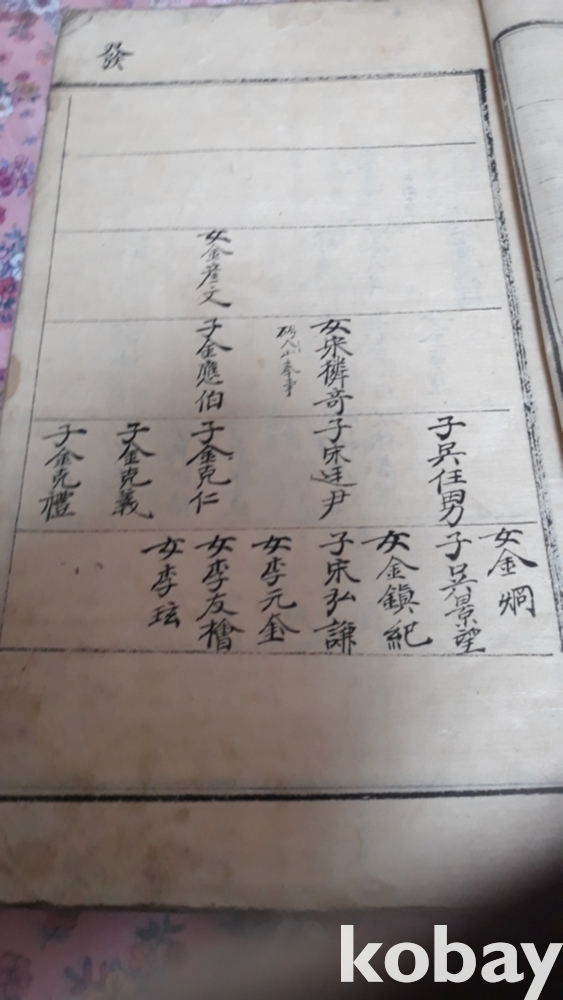 發
女金彦文
女宋 奇
奉事
子金應伯
子吳任男
子宋廷尹
子金克仁
子金克義
子金克禮
女金炯
子吳景望
女金鎭紀
子宋弘謙
女李元金
女李友檜
女李玹
kobay